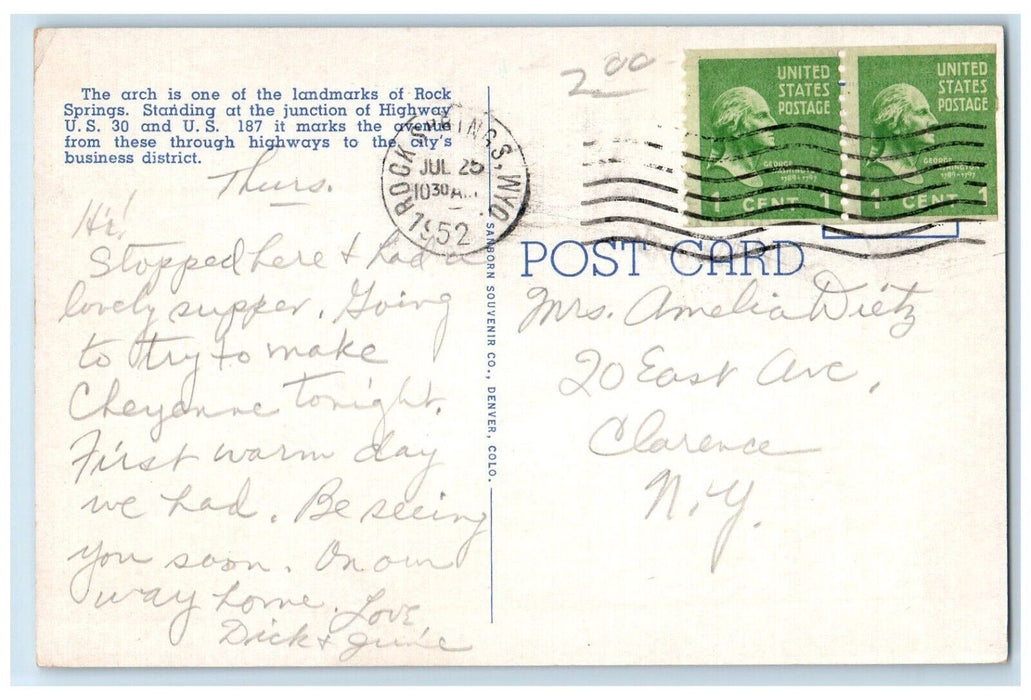 The arch is one of the landmarks of Rock
Springs. Standing at the junction of Highway
U. S. 30 and U. S. 187 it marks the avenue
from these through highways to the city's
business district.
Thurs.
Hi!
Stopped here & had a
lovely supper. Going
to try to make
Cheyenne tonight.
First warm day
we had. Be seeing
you soon. On our
way home. Love
Dick & Junie
SANBORN SOUVENIR CO., DENVER, COLO.
2 00
ROCK SPRINGS, WYO
JUL 25
10 30 AM
1952
UNITED
STATES
POSTAGE
GEORGE
WASHINGTON
1789-1797
1 CENT 1
UNITED
STATES
POSTAGE
GEORGE
WASHINGTON
1789-1797
1 CENT 1
POST CARD
Mrs. Amelia Dietz
20 East Ave,
Clarence
N.Y.